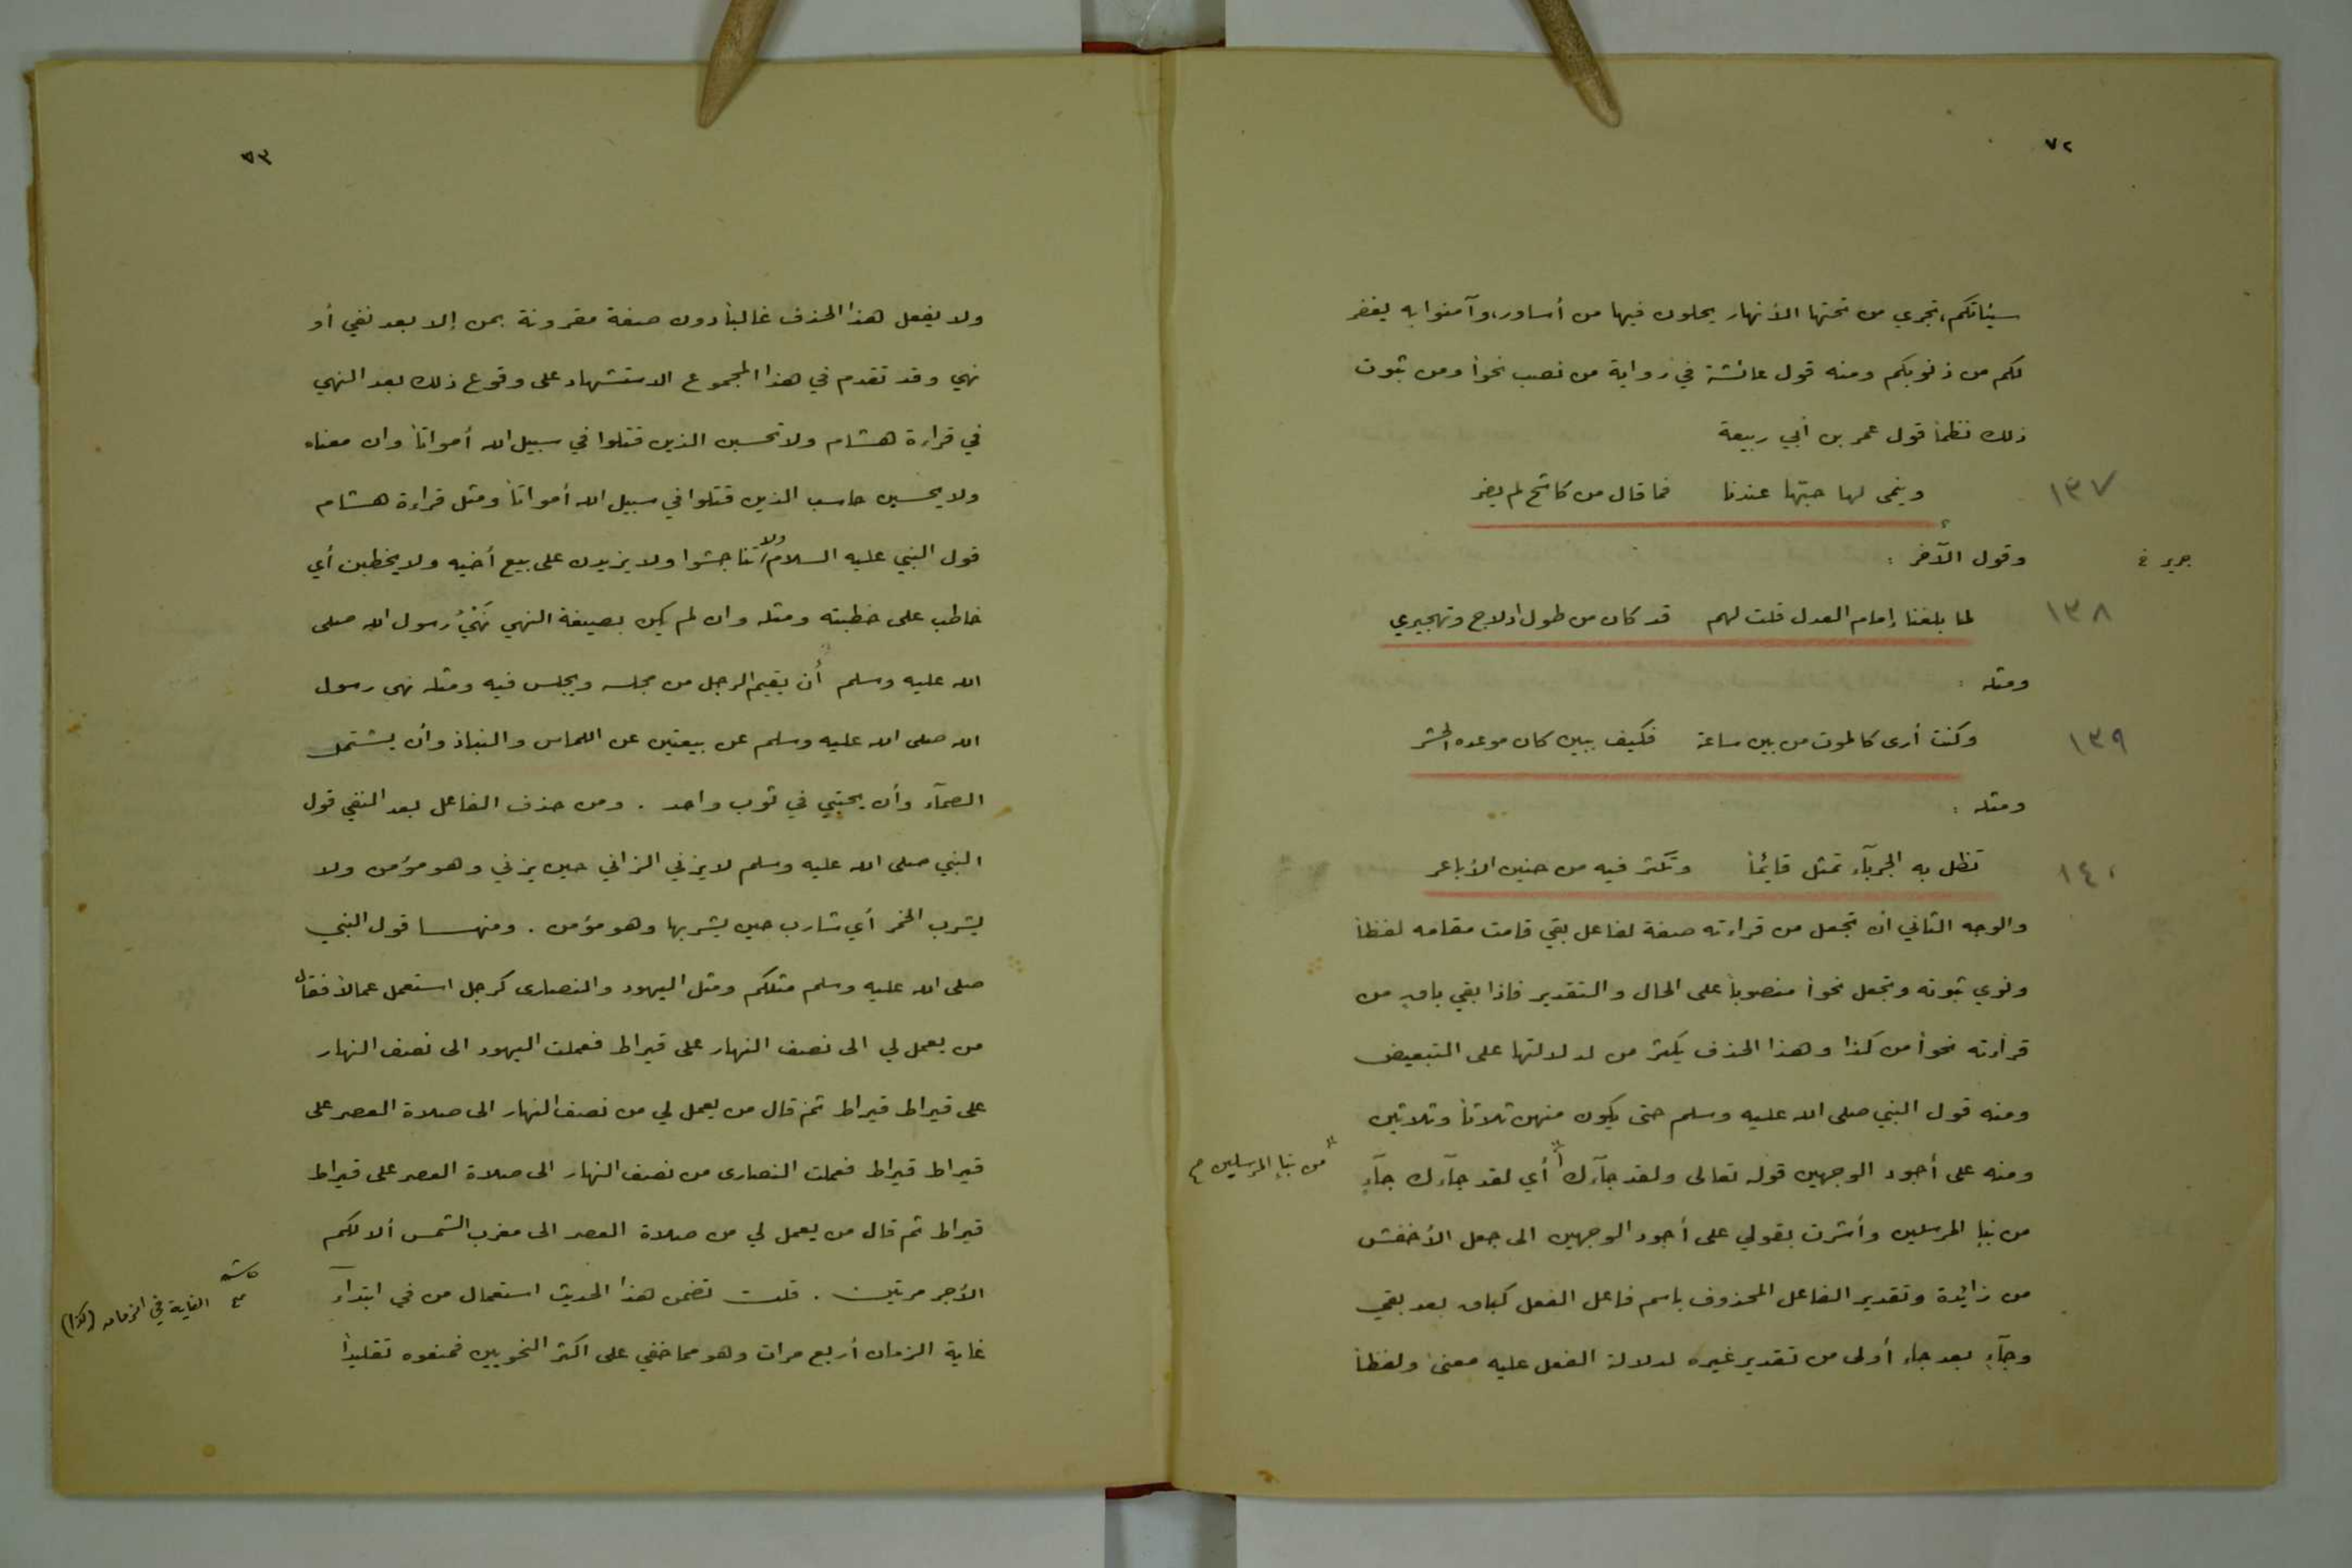 ٧٢
سيئاتكم، تجري من تحتها الأنهار يحلون فيها من أساور، وآمنوا به يغفر
لكم من ذنوبكم ومنه قول عائشة في رواية من نصب نحواً ومن ثبوت
ذلك نظماً قول عمر بن أبي ربيعة
١٣٧ وينمى لها حبّها عندنا فما قال من كاشح لم يضر
وقول الآخر : جرير
١٣٨ لما بلغنا إمام العدل قلت لهم قد كان من طول ادلاج وتهجيري
ومثله :
١٣٩ وكنت أرى كالموت من بين ساعة فكيف ببين كان موعده الحشر
ومثله :
١٤٠ تظل به الحربآء تمثل قائماً وتكثر فيه من حنين الأباعر
والوجه الثاني ان تجعل من قراءته صفة لفاعل بقي قامت مقامه لفظاً
ونوي ثبوته وتجعل نحواً منصوباً على الحال والتقدير فاذا بقي باقٍ من
قراءته نحواً من كذا وهذا الحذف يكثر من لدلالتها على التبعيض
ومنه قول النبي صلى الله عليه وسلم حتى يكون منهن ثلاثاً وثلاثين
ومنه على أجود الوجهين قوله تعالى ولقد جآءك أي لقد جآءك جآءٍ
"من نبإ المرسلين
من نبإ المرسلين وأشرت بقولي على أجود الوجهين الى جعل الأخفش
من زائدة وتقدير الفاعل المحذوف باسم فاعل الفعل كباق بعد بقي
وجآءٍ بعد جاء أولى من تقدير غيره لدلالة الفعل عليه معنىً ولفظاً
٧٣
ولا يفعل هذا الحذف غالباً دون صفة مقرونة بمن إلا بعد نفي أو
نهي وقد تقدم في هذا المجموع الاستشهاد على وقوع ذلك بعد النهي
في قراءة هشام ولا تحسبن الذين قتلوا في سبيل الله أمواتاً وان معناه
ولا يحسبن حاسب الذين قتلوا في سبيل الله أمواتاً ومثل قراءة هشام
قول النبي عليه السلام ولا تناجشوا ولا يزيدن على بيع أخيه ولا يخطبن أي
خاطب على خطبته ومثله وان لم يكن بصيغة النهي نَهْيُ رسول الله صلى
الله عليه وسلم أن يقيم الرجل من مجلسه ويجلس فيه ومثله نهى رسول
الله صلى الله عليه وسلم عن بيعتين عن اللماس والنباذ وأن يشتمل
الصمآء وأن يحتبي في ثوب واحد . ومن حذف الفاعل بعد النفي قول
النبي صلى الله عليه وسلم لا يزني الزاني حين يزني وهو مؤمن ولا
يشرب الخمر أي شارب حين يشربها وهو مؤمن . ومنهــا قول النبي
صلى الله عليه وسلم مثلكم ومثل اليهود والنصارى كرجل استعمل عمالاً فقال
من يعمل لي الى نصف النهار على قيراط فعملت اليهود الى نصف النهار
على قيراط قيراط ثم قال من يعمل لي من نصف النهار الى صلاة العصر على
قيراط قيراط فعملت النصارى من نصف النهار الى صلاة العصر على قيراط
قيراط ثم قال من يعمل لي من صلاة العصر الى مغرب الشمس ألا لكم
الأجر مرتين . قلت تضمن هذا الحديث استعمال من في ابتدآء
غاية الزمان أربع مرات وهو مما خفي على اكثر النحويين فمنعوه تقليداً
الغاية في الزمان (كذا)